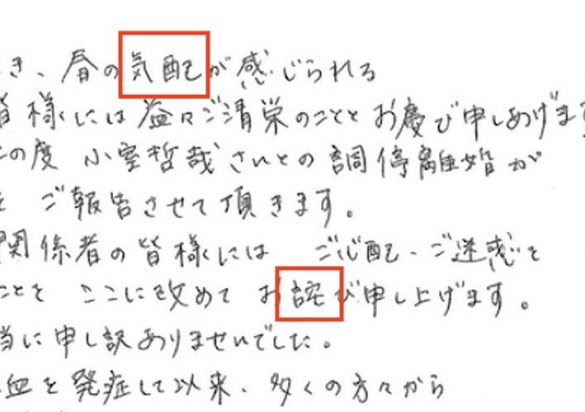 き、春の気配が感じられる
皆様には益々ご清栄のこととお慶び申しあげます
の度 小室哲哉さんとの調停離婚が
ご報告させて頂きます。
関係者の皆様には ご心配、ご迷惑を
ことを ここに改めてお詫び申し上げます。
当に申し訳ありませんでした。
血を発症して以来、多くの方々から